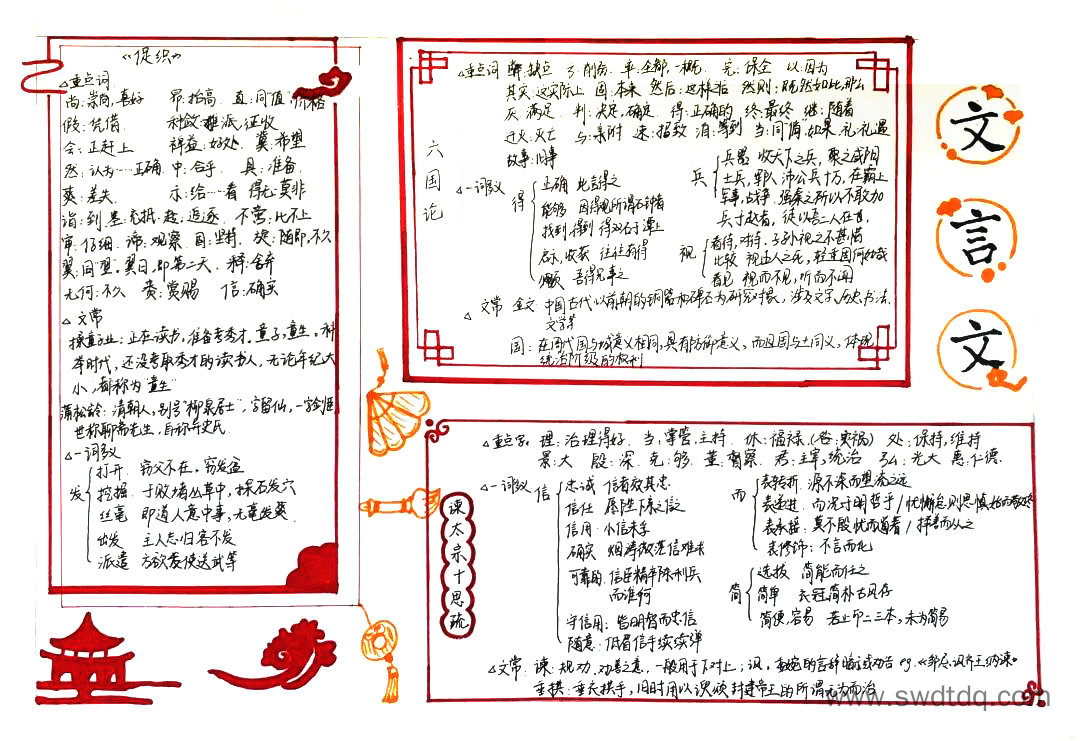 《促织》
△重点词
尚:崇尚,喜好 昂:抬高 直:同"值"价格
假:凭借 科敛:摊派,征收
会:正赶上 裨益:好处 冀:希望
然:认为……正确 中:合乎 具:准备
爽:差失 示:给……看
诣:到 差:充抵 趁:追逐 不啻:比不上
审:仔细 谛:观察 固:坚持 旋:随即,不久
翼:同"翌",翌日,即第二天
无何:不久 赉:赏赐 信:确实
△文常
操童子业:正在读书,准备考秀才。童子,童生。科
举时代,还没考取秀才的读书人,无论年纪大
小,都称为"童生"
蒲松龄:清朝人,别号"柳泉居士",字留仙,一字剑臣
世称聊斋先生,自称异史氏
△一词多义
发
打开 窃父不在,窃发盆
挖掘 于败堵丛草中,探石发穴
丝毫 即道人意中事,无毫发爽
出发 主人忘归客不发
派遣 方欲发使送武等
六国论
△重点词 弊:缺点 率:全都,一概 完:保全 以:因为
其实:这实际上 固:本来 然后:这样 然则:既然如此,那么
厌:满足 判:决定,确定 得:正确的 终:最终 继:随着
速:招致 洎:等到 当:同"倘"如果 礼:礼遇
故事:旧事
△一词多义
得
正确 此言得之
能够
找到 得双石于潭上
获 往往有得
吾得兄事之
兵
兵器 收天下之兵,聚之咸阳
士兵 沛公兵十万,在霸上
战争 强秦之所以不敢加
兵于赵者,徒以吾二人在也
视
看待,对待 子孙视之不甚惜
比较
看见 视而不见,听而不闻
△文常 金文 中国古代以前朝的铜器和碑石为研究对象,涉及文字,历史,书法,
文学等
国:在周代国与城意义相同,具有防御意义,而且国与土同义,体现
统治阶级的权利
文
言
文
谏太宗十思疏
△重点字:理:治理得好 当:掌管,主持 休:福禄 处:保持,维持
景:大 殷:深 克:够 董:督察 君:主宰,统治 弘:光大 惠:仁德
△一词多义
信
忠诚 信者效其忠
信任 愿陛下亲之信之
信用 小信未孚
确实 烟涛微茫信难求
可靠的 信臣精卒陈利兵
而谁何
守信用 皆明智而忠信
随意 低眉信手续续弹
而
表转折 源不深而望流之远
表递进 而况于明哲乎/忧懈怠则思慎始而敬终
表承接 莫不殷忧而道著/择善而从之
表修饰 不言而化
简
选拔 简能而任之
简单 衣冠简朴古风存
简便,容易 若止印二三本,未为简易
△文常 谏:规劝,劝善之意,一般用于下对上;讽,委婉的言辞临近劝告 eg.《邹忌讽齐王纳谏》
垂拱:垂衣拱手,旧时用以谀颂封建帝王的所谓无为而治
www.swdtdq.com